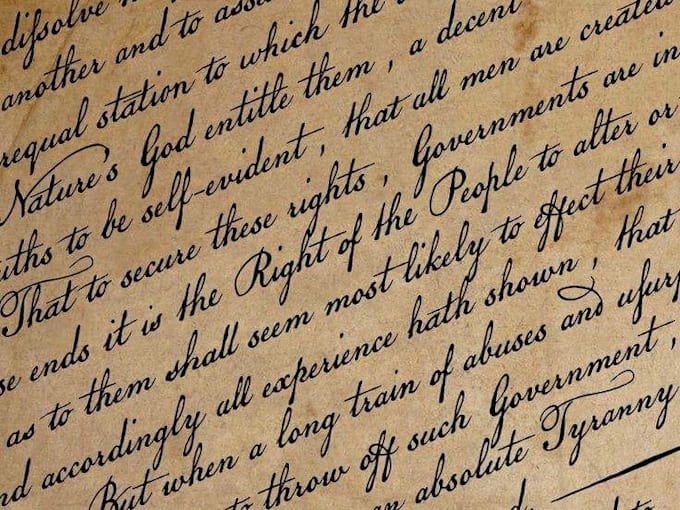 dissolve
another and to
equal station to which the
Nature's God entitle them, a decent
to be self-evident, that all men are created
That to secure these rights, Governments are in
ends it is the Right of the People to alter or
as to them shall seem most likely to effect their
accordingly all experience hath shown, that
But when a long train of abuses and usurp
to throw off such Government,
absolute Tyranny